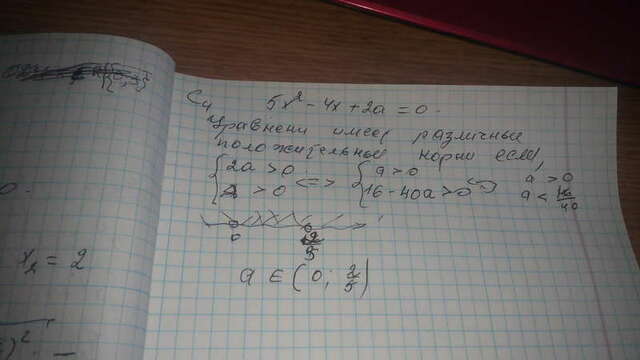 0.
x₂ = 2
)²
C₄ 5x² - 4x + 2a = 0.
Уравнени имеет различные
положительные корни если,
{ 2a > 0 <=> { a > 0 a > 0
{ Д > 0 { 16 - 40a > 0 <=> a < 16/40
0 2/5
a ∈ (0; 2/5)